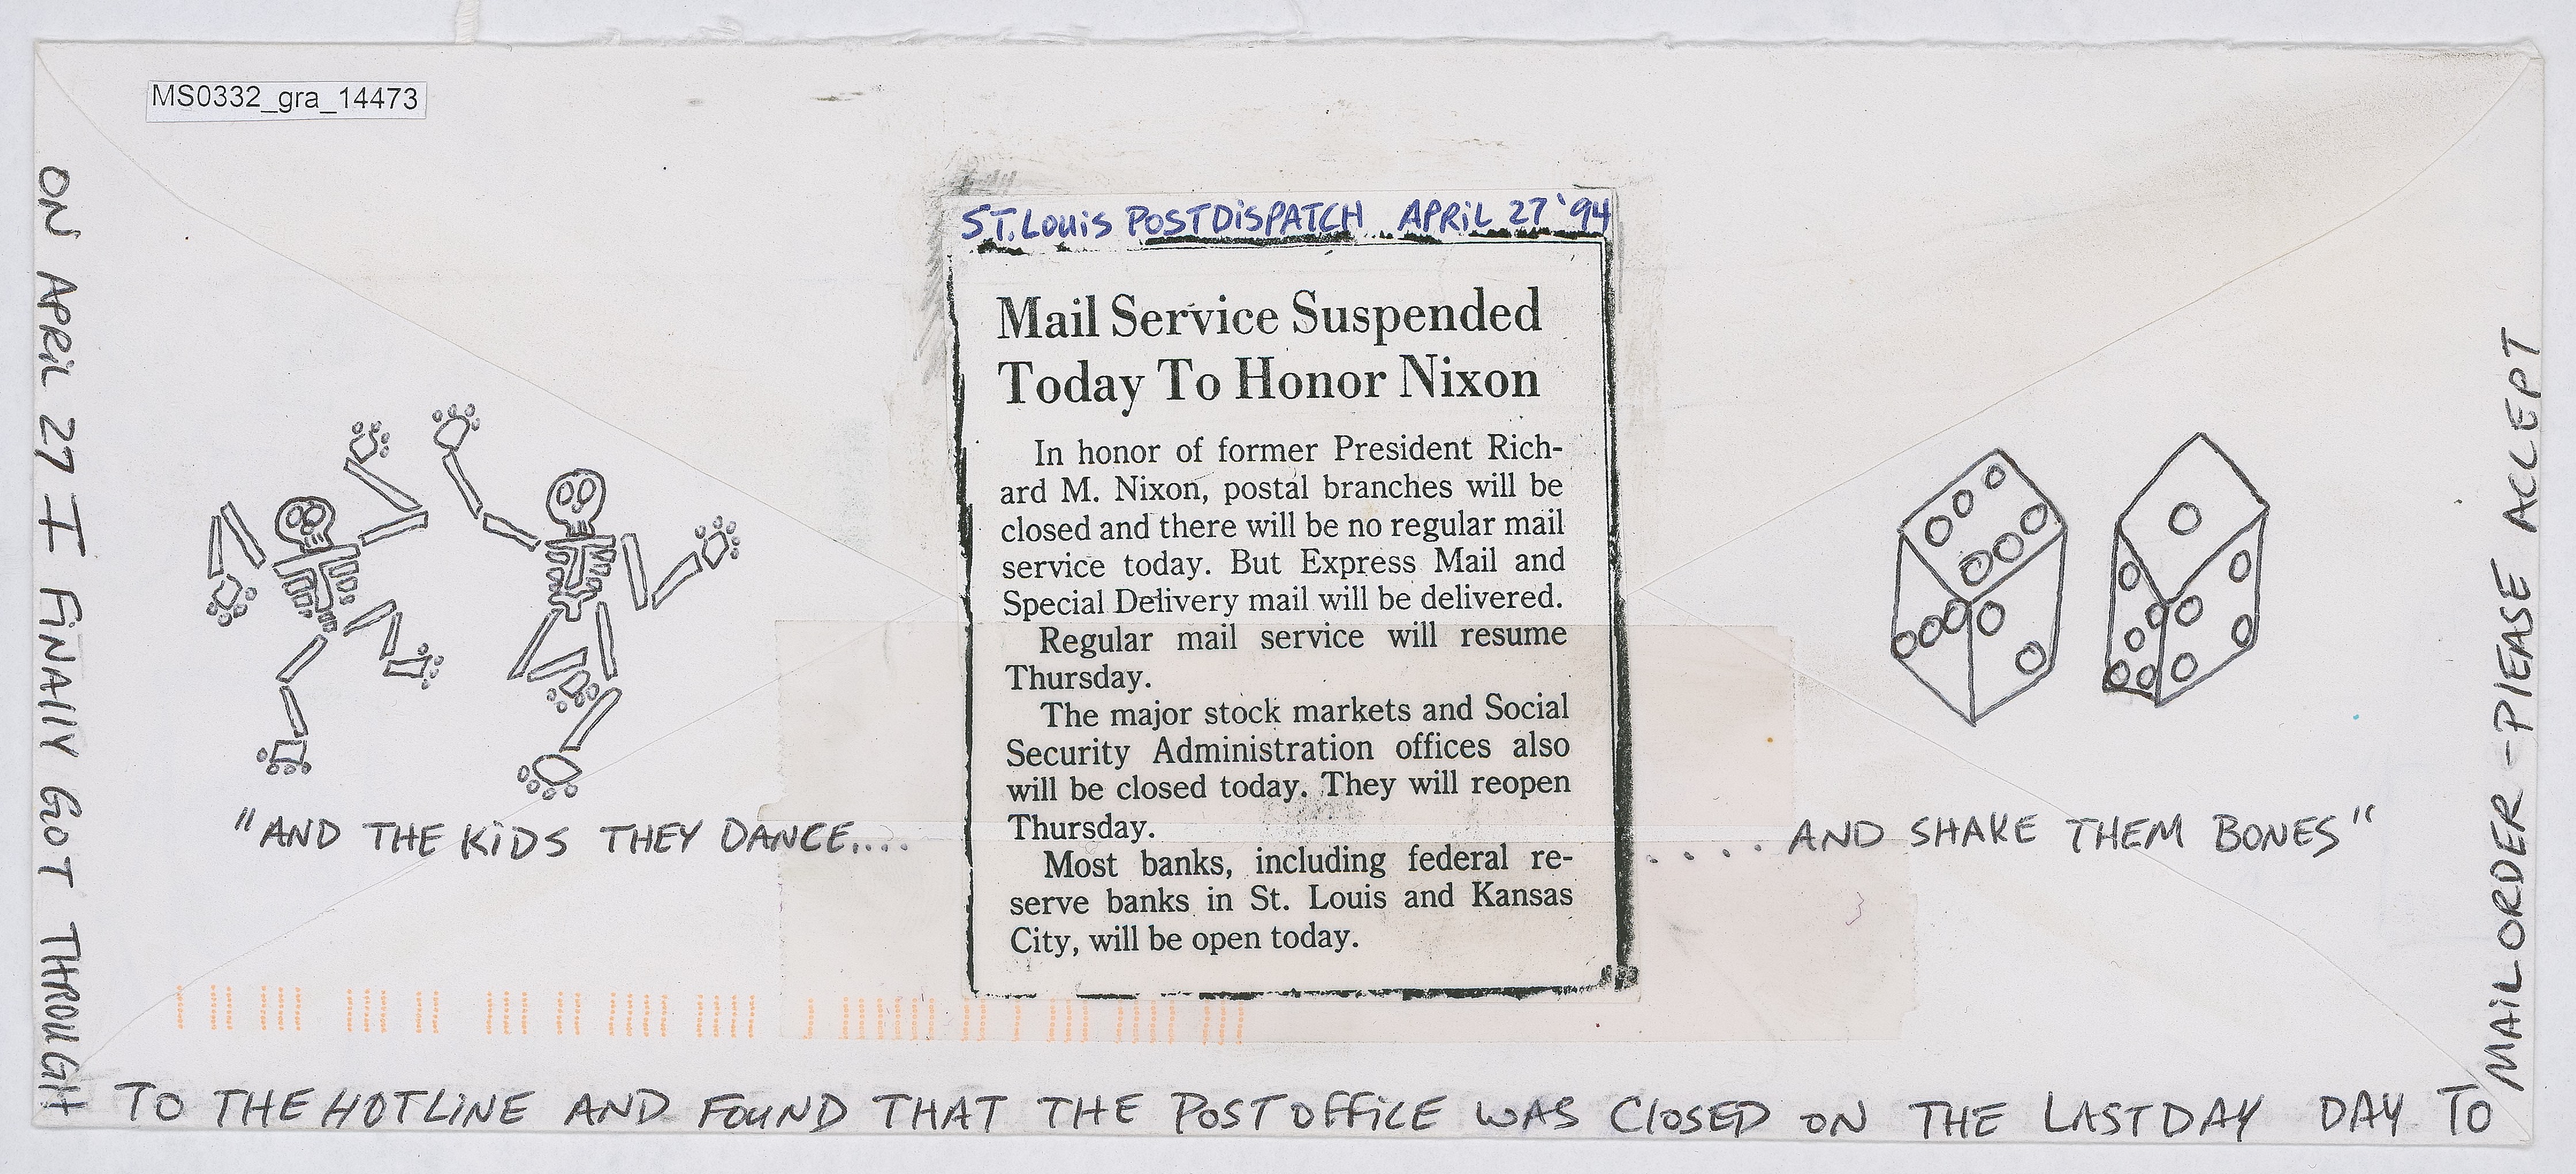 MS0332_gra_14473
ST. LOUIS POST DISPATCH APRIL 27 '94
Mail Service Suspended
Today To Honor Nixon
In honor of former President Rich-
ard M. Nixon, postal branches will be
closed and there will be no regular mail
service today. But Express Mail and
Special Delivery mail will be delivered.
Regular mail service will resume
Thursday.
The major stock markets and Social
Security Administration offices also
will be closed today. They will reopen
Thursday.
Most banks, including federal re-
serve banks in St. Louis and Kansas
City, will be open today.
"AND THE KIDS THEY DANCE....
.... AND SHAKE THEM BONES"
ON APRIL 27 I FINALLY GOT THROUGH
TO THE HOTLINE AND FOUND THAT THE POST OFFICE WAS CLOSED ON THE LAST DAY DAY TO
MAILORDER - PLEASE ACCEPT